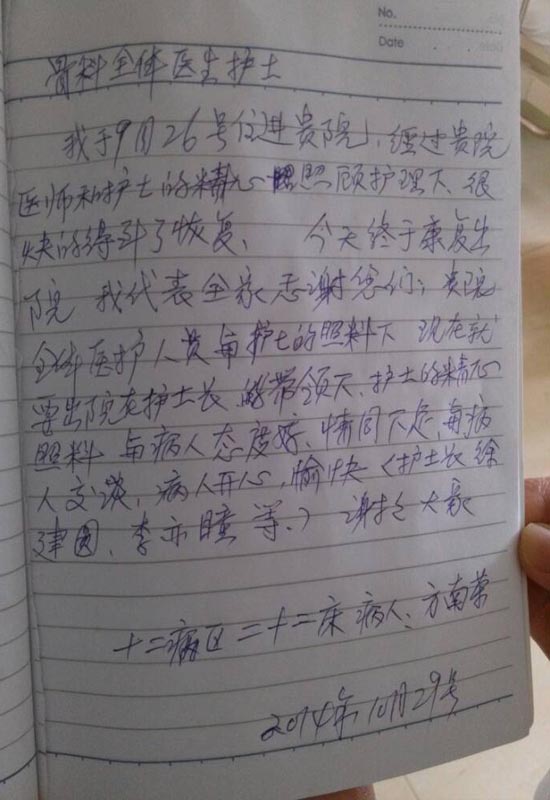 No.
Date
骨科全体医生护士
我于9月26号住进贵院，经过贵院
医师和护士的精心照顾护理下、很
快的得到了恢复、 今天终于康复出
院 我代表全家感谢您们；贵院
全体医护人员与护士的照料下 现在就
要出院在护士长的带领下、护士的精心
照料 与病人态度好、情同下足、每病
人交谈，病人开心，愉快（护士长徐
建圆、李亦瞳等、）谢谢大家
十二病区二十二床病人：方南荣
2014年10月29号